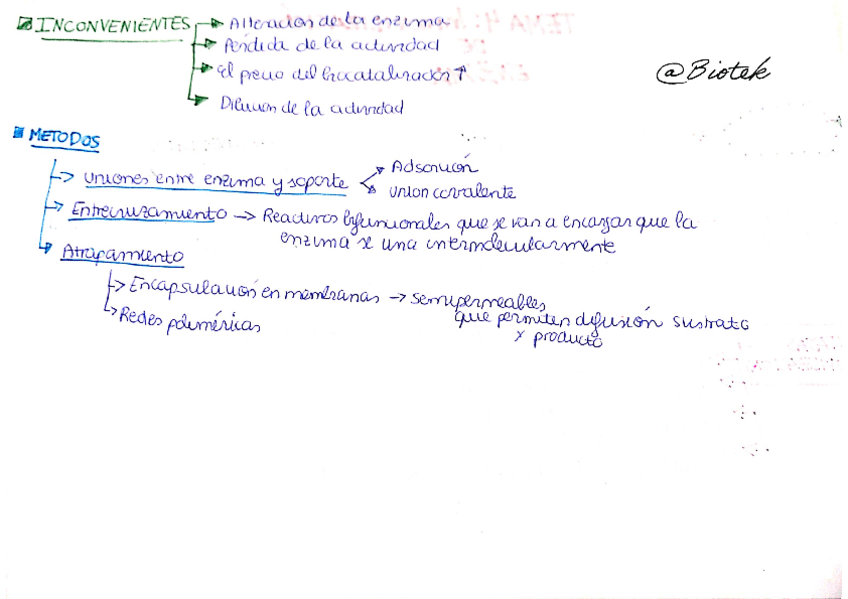 INCONVENIENTES → Alteración de la enzima
→ Pérdida de la actividad
→ El precio del biocatalizador ↑
→ Dilución de la actividad
@Biotek
METODOS
→ Uniones entre enzima y soporte → Adsorción
→ Union covalente
→ Entrecruzamiento → Reactivos bifuncionales que se van a encargar que la
enzima se una intermolecularmente
→ Atrapamiento
→ Encapsulación en membranas → semipermeables
que permiten difusión sustrato
y producto
→ Redes poliméricas